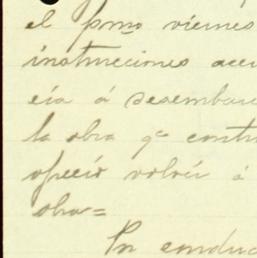 el pmo viernes
instrucciones acer
cia á desembarc
la obra qe constr
ofreció volvér á
obra=
En conduc